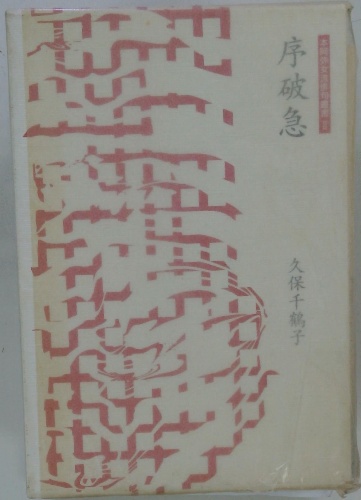 序破急
久保千鶴子